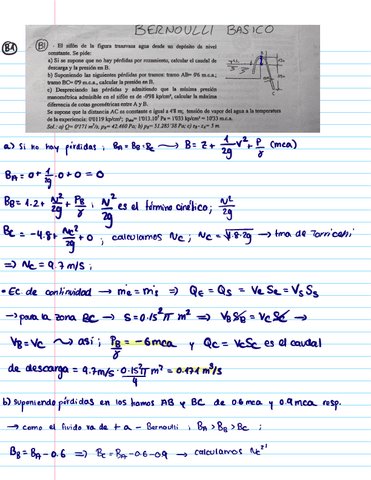 BERNOULLI BASICO
B1
B1 - El sifón de la figura trasvasa agua desde un depósito de nivel
constante. Se pide:
a) Si se supone que no hay pérdidas por rozamiento, calcular el caudal de
descarga y la presión en B.
b) Suponiendo las siguientes pérdidas por tramos: tramo AB= 0'6 m.c.a.;
tramo BC= 0'9 m.c.a., calcular la presión en B.
c) Despreciando las pérdidas y admitiendo que la máxima presión
manométrica admisible en el sifón es de -0'98 kp/cm², calcular la máxima
diferencia de cotas geométricas entre A y B.
Se supone que la distancia AC es constante e igual a 4'8 m; tensión de vapor del agua a la temperatura
de la experiencia: 0'0119 kp/cm²;
Sol.: a) Q= 0'171 m³/s,
a) Si no hay pérdidas; BA = BB = BC → B = z + 1/2g v² + P/γ (mca)
BA = 0 + 1/2g · 0 + 0 = 0
BB = 1.2 + v²/2g + PB/γ ; v²/2g es el término cinético; v²/2g
BC = -4.8 + vc²/2g + 0 ; calculamos vc ; vc = √4.8·2g → tma de Torricelli
⇒ vc = 9.7 m/s ;
• Ec. de continuidad → ṁe = ṁs ⇒ QE = QS = Ve Se = Vs Ss
→ para la zona BC → S = 0.15² π m² ⇒ VB SB = VC SC →
VB = VC ⇝ así ; PB/γ = -6 mca y QC = VC SC es el caudal
de descarga = 9.7 m/s · 0.15²/4 π m² = 0.171 m³/s
b) Suponiendo pérdidas en los tramos AB y BC de 0.6 mca y 0.9 mca resp.
→ como el fluido va de + a - Bernoulli ; BA > BB > BC ;
BB = BA - 0.6 ⇒ BC = BA - 0.6 - 0.9 → calculamos vc